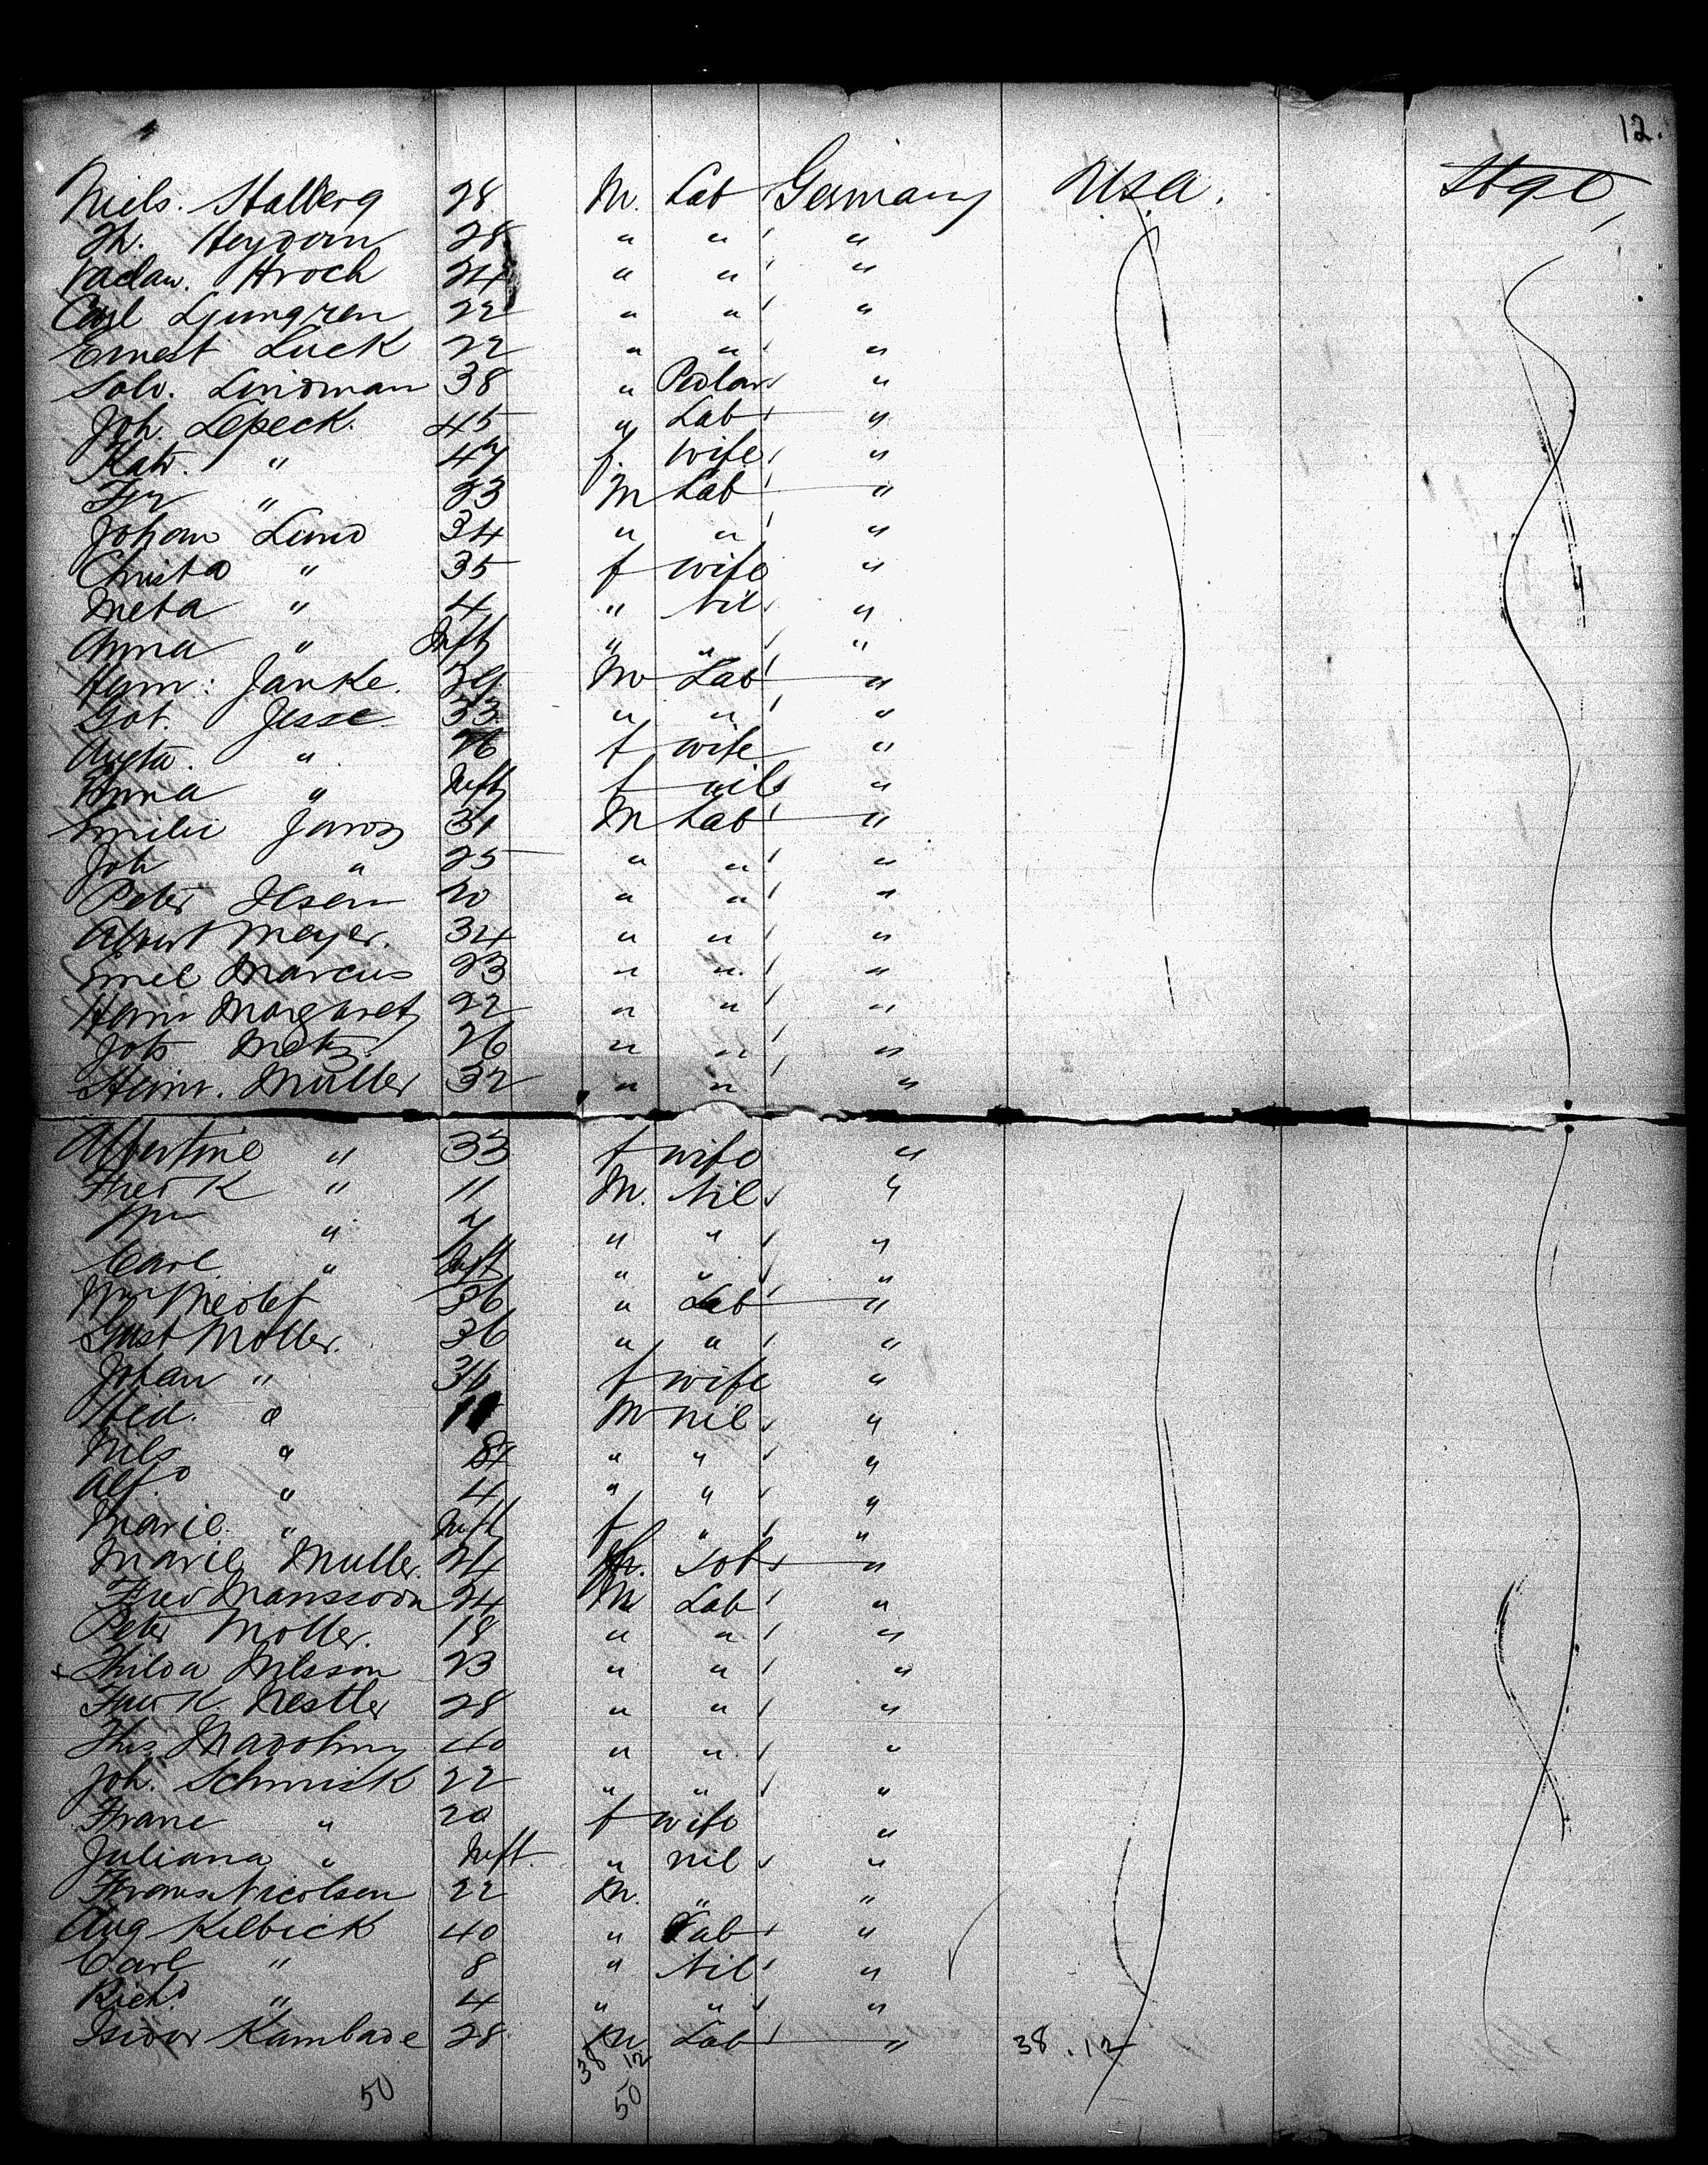 12.
Niels. Stalberg 28 M. Lab Germany Usa. Stge,
Th. Heydorn 28 " " "
Vaclaw. Hroch 24 " " "
Carl Ljungren 22 " " "
Ernest Luck 22 " " "
Solo. Lindman 38 " Pedlar "
Joh. Lepeck. 45 " Lab "
Kath. " 47 f. wife "
Fr " 23 M Lab "
Johan Lund 34 " " "
Christa " 35 f wife "
Meta " 4 " Nil "
Anna " Inft " " "
Hym: Janke. 39 M Lab "
Got. Jesse 33 " " "
Augta. " 26 f wife "
Anna " Inft f nil "
Emilii Jaros 31 M Lab "
Joh " 25 " " "
Peter Ilsen 20 " " "
Albert Meyer. 34 " " "
Emel Marcus 23 " " "
Heinr Margaret 22 " " "
Joh Metz. 26 " " "
Heinr. Muller 32 " " "
Albertine " 33 f wife "
Fred K " 11 M. Nil "
Wm " 7 " " "
Carl " Inft " " "
Wm 36 " Lab "
Gust Moller. 36 " " "
Johan " 36 f wife "
Hed. " 11 M nil "
Nils " 8 " " "
Alf. " 4 " " "
Marie " Inft f " "
Marie Muller. 24 f. "
Fred Mansson 24 M Lab "
Peter Moller. 18 " " "
x Thilda Nilsson 23 " " "
Fred K. Nestler 28 " " "
Ths. 40 " " "
Joh. Schmick 22 " " "
Franc " 20 f wife "
Juliana " Inft. " nil "
Frans Nicolsen 22 M. " "
Aug Kilbick 40 " Lab "
Carl " 8 " Nil "
Richd " 4 " " "
Isidor Kambade 28 M Lab " 38.12
38 12
50 50